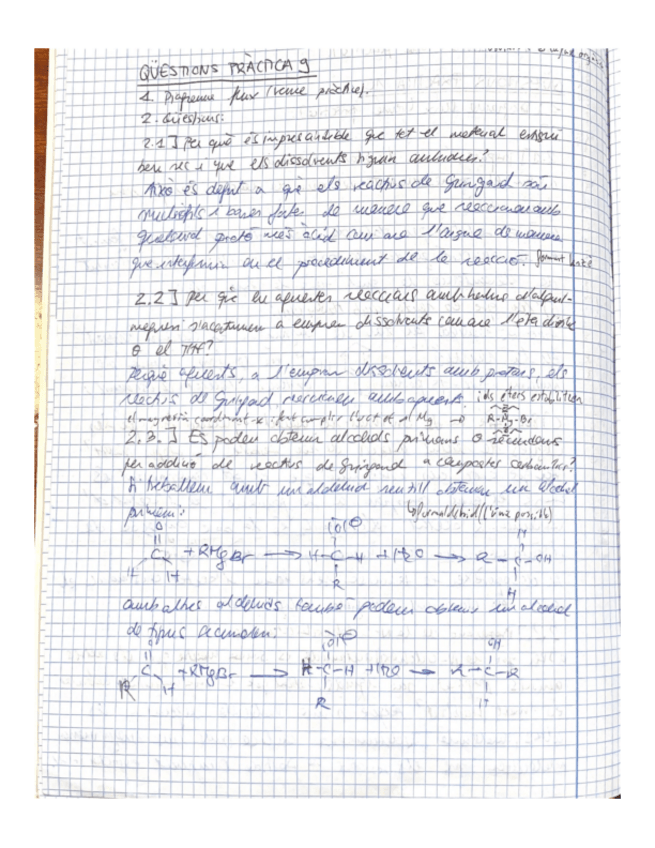 QÜESTIONS PRÀCTICA 9
1. Diagrama flux (veure pràctica).
2. Qüestions:
2.1] Per què és imprescindible que tot el material estigui
ben sec i que els dissolvents siguin anhidres?
Això és degut a què els reactius de Gringard són
nucleòfils i bases fortes de manera que reaccionen amb
qualsevol protó més àcid com ara l'aigua de manera
que interfereix en el procediment de la reacció. formant
2.2] Per què en aquestes reaccions amb halurs d'alquil-
magnesi s'acostumen a emprar dissolvents com ara l'èter dietílic
o el THF?
Perquè aquests, a l'emprar dissolvents amb protons, els
reactius de Gringard reaccionen amb aquests i els èters estabilitzen
el magnesi coordinant-se i fent complir l'octet el Mg → R-Mg-Br
2.3.] Es poden obtenir alcohols primaris o secundaris
per addició de reactius de Gringard a compostos carbonílics?
Si treballem amb un aldehid senzill obtenim un alcohol
primari: formaldehid (l'única possible)
O
C + RMgBr → H-C-H + H2O → R-C-OH
H H
R
H
amb altres aldehids també podem obtenir un alcohol
de tipus secundari:
C + RMgBr → R-C-H + H2O → R-C-R
R H
R
OH
H